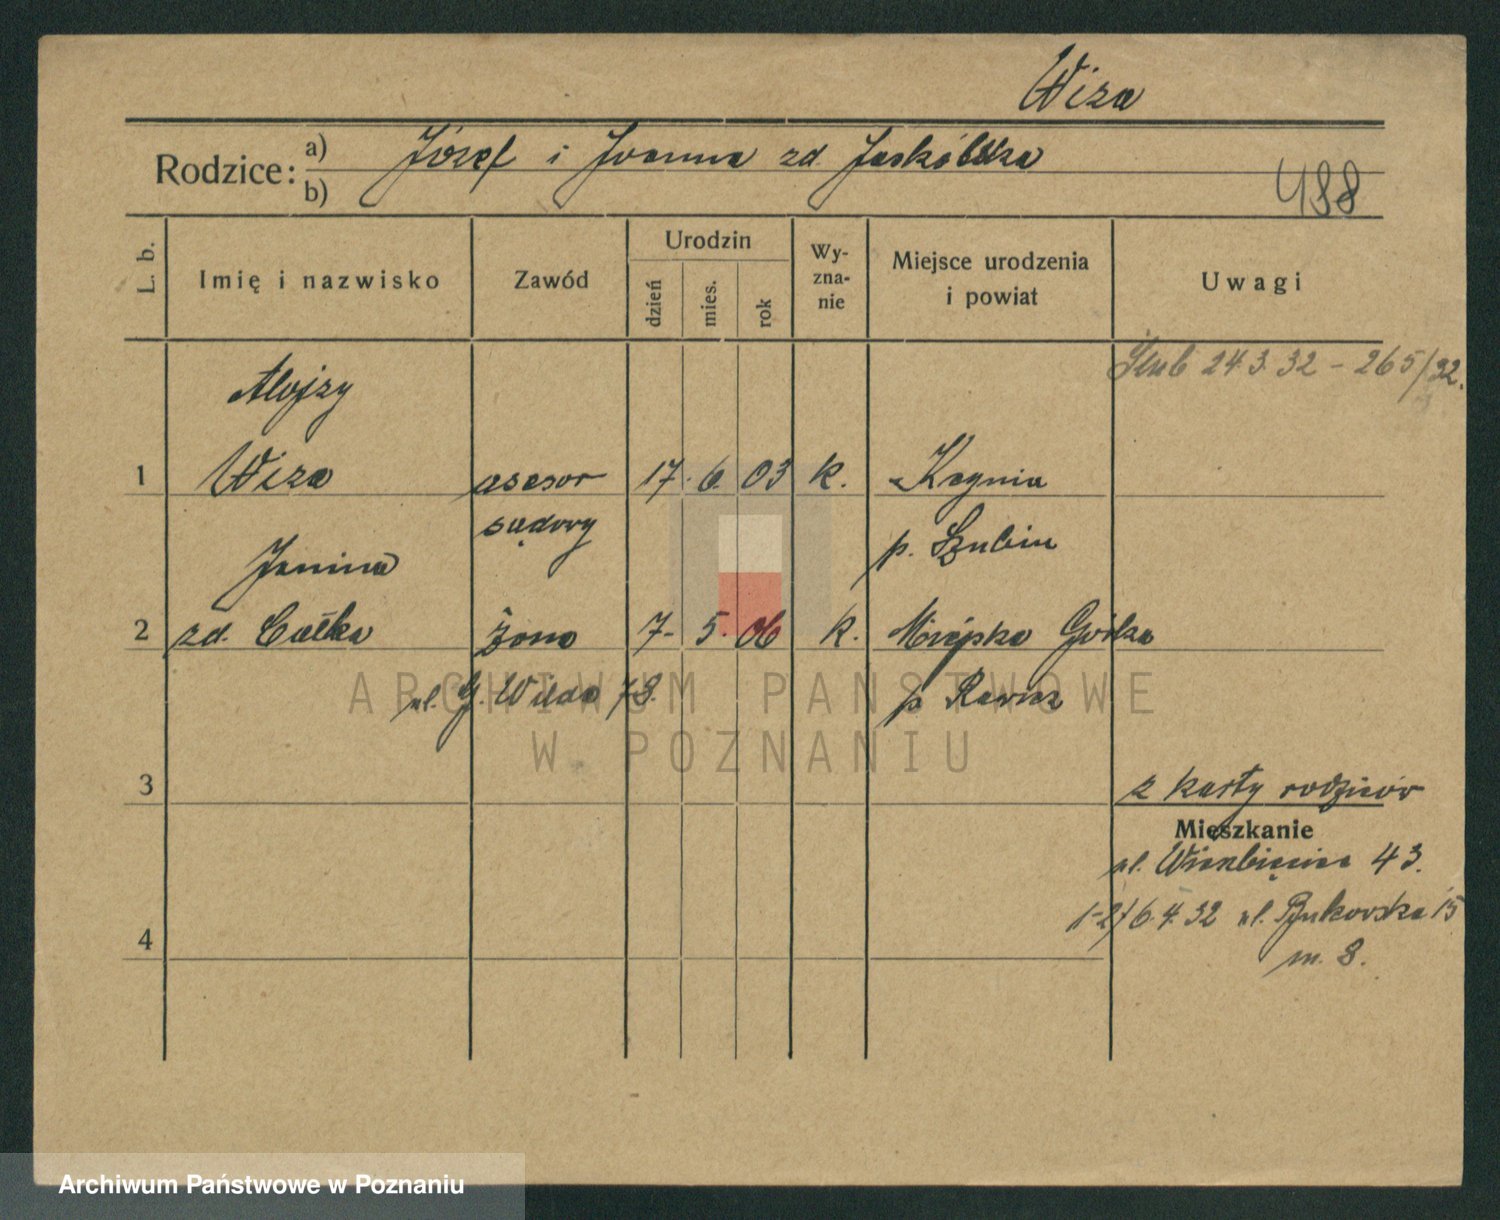 Wiza
Rodzice: a) Józef i Joanna zd. Jaskólska
b)
488
L. b.
Imię i nazwisko
Zawód
Urodzin
dzień
mies.
rok
Wy-
zna-
nie
Miejsce urodzenia
i powiat
Uwagi
Ślub 24 3. 32 - 265/32.
Alojzy
1 Wiza asesor 17. 6. 03 k. Kcynia
sądowy p. Szubin
Janina
2 zd. Całka żona 7. 5. 06 k. Miejska Górka
ul. G. Wilda 78. p. Rawicz
ARCHIWUM PAŃSTWOWE
W POZNANIU
3
z karty rodziców
Mieszkanie
ul. Wierzbięcice 43.
1-2/6.4.32 ul. Bukowska 15
m. 8.
4
Archiwum Państwowe w Poznaniu